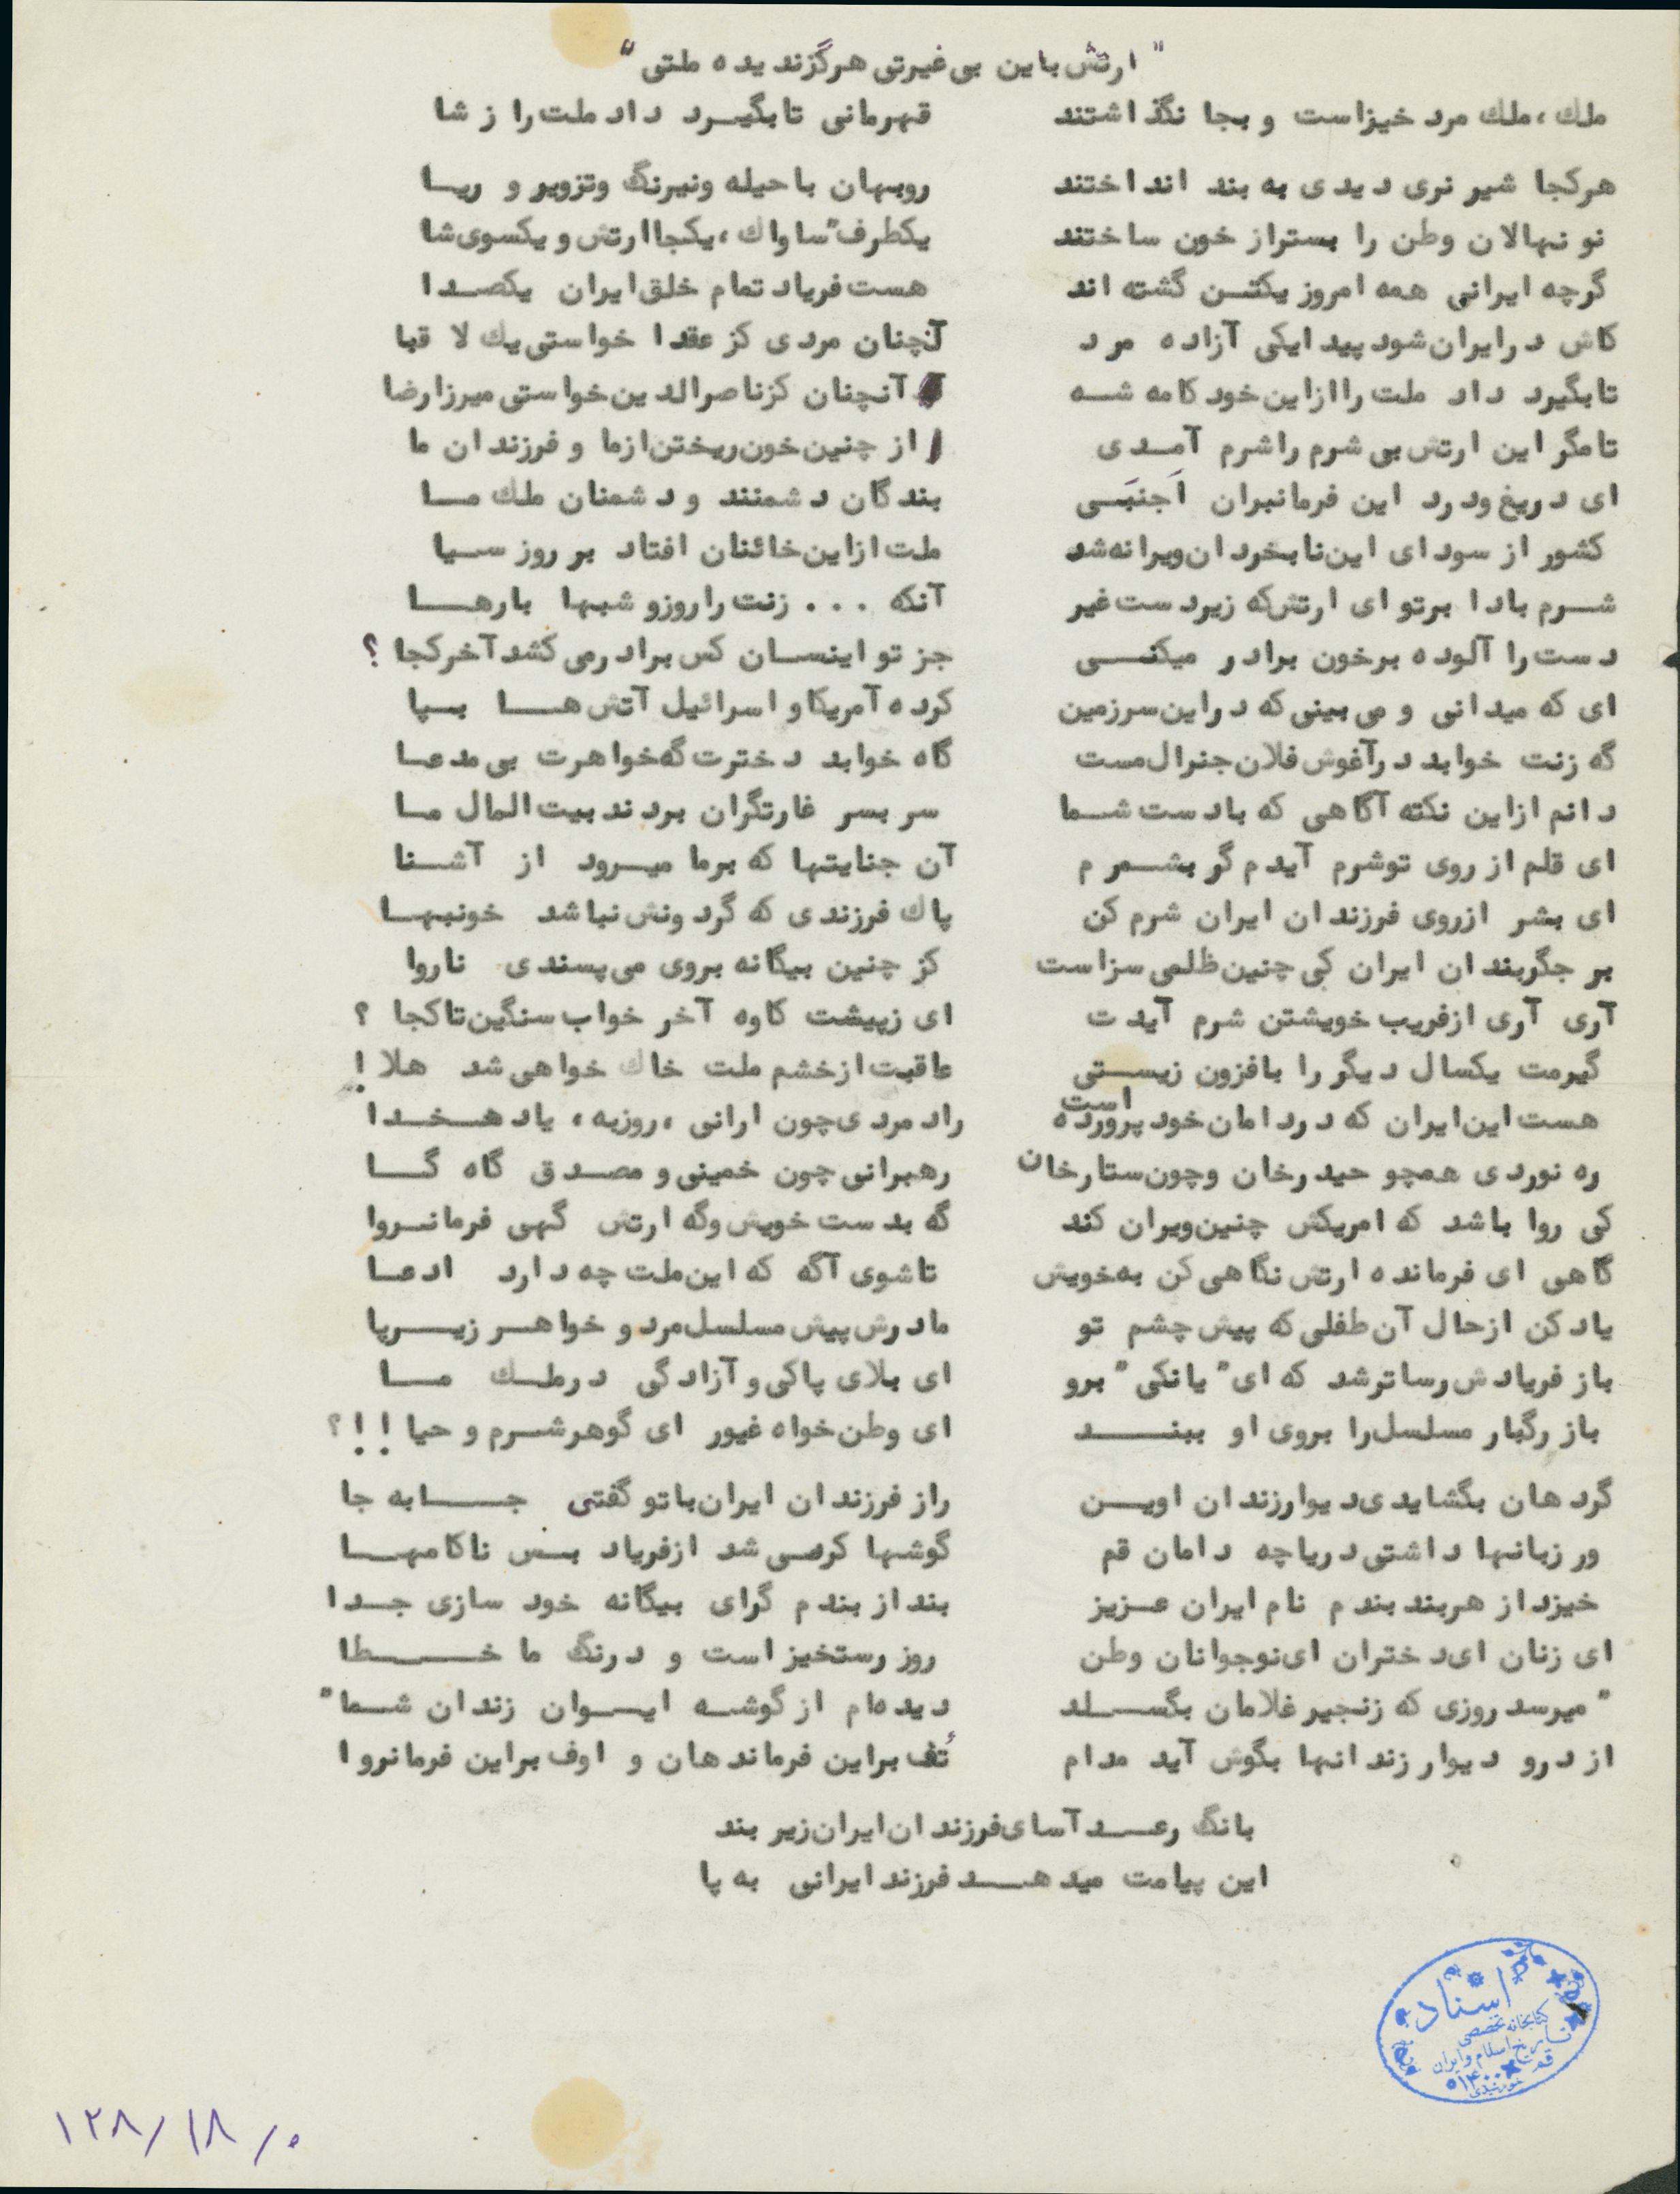 "ارتش باین بی غیرتی هرگز ندیده ملتی"
ملك، ملك مرد خیز است و بجا نگذاشتند قهرمانی تا بگیرد داد ملت را ز شا
هرکجا شیر نری دیدی به بند انداختند روبهان با حیله ونیرنگ وتزویر و ریا
نو نهالان وطن را بستر از خون ساختند یکطرف "ساواك، یکجا ارتش و یکسوی شا
گرچه ایرانی همه امروز یکتن گشته اند هست فریاد تمام خلق ایران یکصدا
کاش در ایران شود پیدا یکی آزاده مرد آنچنان مردی کز عقدا خواستی یك لا قبا
تا بگیرد داد ملت را از این خود کامه شه آنچنان کز ناصرالدین خواستی میرزا رضا
تا مگر این ارتش بی شرم را شرم آمدی از چنین خون ریختن از ما و فرزندان ما
ای دریغ و درد این فرمانبران اَجنَبی بندگان دشمنند و دشمنان ملك ما
کشور از سودای این نابخردان ویرانه شد ملت از این خائنان افتاد بر روز سیا
شرم بادا بر تو ای ارتش که زیر دست غیر آنکه ... زنت را روز و شبها بارها
دست را آلوده بر خون برادر میکنی جز تو اینسان کس برادر می کشد آخر کجا ؟
ای که میدانی و می بینی که در این سرزمین کرده آمریکا و اسرائیل آتش ها بپا
گه زنت خوابد در آغوش فلان جنرال مست گاه خوابد دخترت گه خواهرت بی مدعا
دانم از این نکته آگاهی که با دست شما سر بسر غارتگران بردند بیت المال ما
ای قلم از روی تو شرم آیدم گر بشمرم آن جنایتها که بر ما میرود از آشنا
ای بشر از روی فرزندان ایران شرم کن پاك فرزندی که گردونش نباشد خونبها
بر جگربندان ایران کی چنین ظلمی سزاست کز چنین بیگانه بروی می پسندی ناروا
آری آری از فریب خویشتن شرم آیدت ای ز پیشت کاوه آخر خواب سنگین تا کجا ؟
گیرمت یکسال دیگر را بافزون زیستی عاقبت از خشم ملت خاك خواهی شد هلا !
هست این ایران که در دامان خود پرورده است راد مردی چون ارانی، روزبه، یاد هخدا
ره نوردی همچو حیدرخان وچون ستارخان رهبرانی چون خمینی و مصدق گاه گا
کی روا باشد که امریکش چنین ویران کند گه بدست خویش وگه ارتش گهی فرمانروا
گاهی ای فرمانده ارتش نگاهی کن به خویش تا شوی آگه که این ملت چه دارد ادعا
یاد کن از حال آن طفلی که پیش چشم تو مادرش پیش مسلسل مرد و خواهر زیر پا
باز فریادش رساتر شد که ای "یانکی" برو ای بلای پاکی و آزادگی در ملك ما
باز رگبار مسلسل را بروی او ببند ای وطن خواه غیور ای گوهر شرم و حیا !!؟
گر دهان بگشایدی دیوار زندان اوین راز فرزندان ایران با تو گفتی جابه جا
ور زبانها داشتی دریاچه دامان قم گوشها کر می شد از فریاد بس ناکامها
خیزد از هر بند بندم نام ایران عزیز بند از بندم گرای بیگانه خود سازی جدا
ای زنان ای دختران ای نوجوانان وطن روز رستخیز است و درنگ ما خطا
"میرسد روزی که زنجیر غلامان بگسلد دیده ام از گوشه ایوان زندان شما"
از در و دیوار زندانها بگوش آید مدام تُف بر این فرماندهان و اوف بر این فرمانروا
بانگ رعد آسای فرزندان ایران زیر بند
این پیامت میدهد فرزند ایرانی به پا
اسناد
کتابخانه تخصصی
تاریخ اسلام و ایران
قم
۱۲۸/۱۸/۰